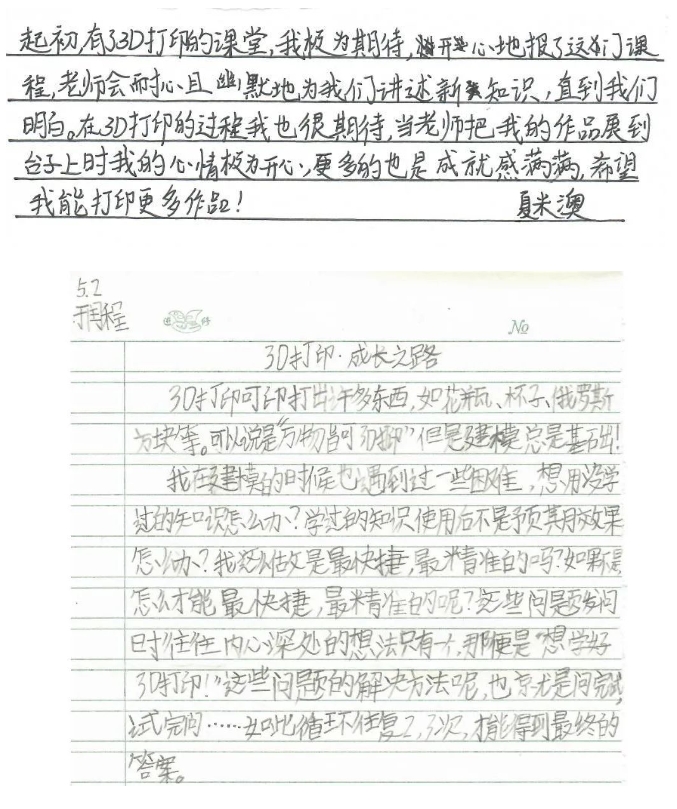 起初,有了3D打印的课堂,我极为期待,开心地报了这门课
程,老师会耐心且幽默地为我们讲述新知识,直到我们
明白。在3D打印的过程我也很期待,当老师把我的作品展到
台子上时我的心情极为开心,更多的也是成就感满满,希望
我能打印更多作品!
夏米澳
5.2
程
No
3D打印·成长之路
3D打印可印打出许多东西,如花瓶、杯子、俄罗斯
方块等。可以说是"万物皆可3D打印"但是建模总是基础!
我在建模的时候也遇到过一些困难,想用没学
过的知识怎么办?学过的知识使用后不是预期效果
怎么办?我这么做是最快捷,最精准的吗?如果不是
怎么才能最快捷,最精准的呢?这些问题发问
时往往内心深处的想法只有一个,那便是"想学好
3D打印!"这些问题的解决方法呢,也就是问完试,
试完问……如此循环往复2,3次,才能得到最终的
答案。